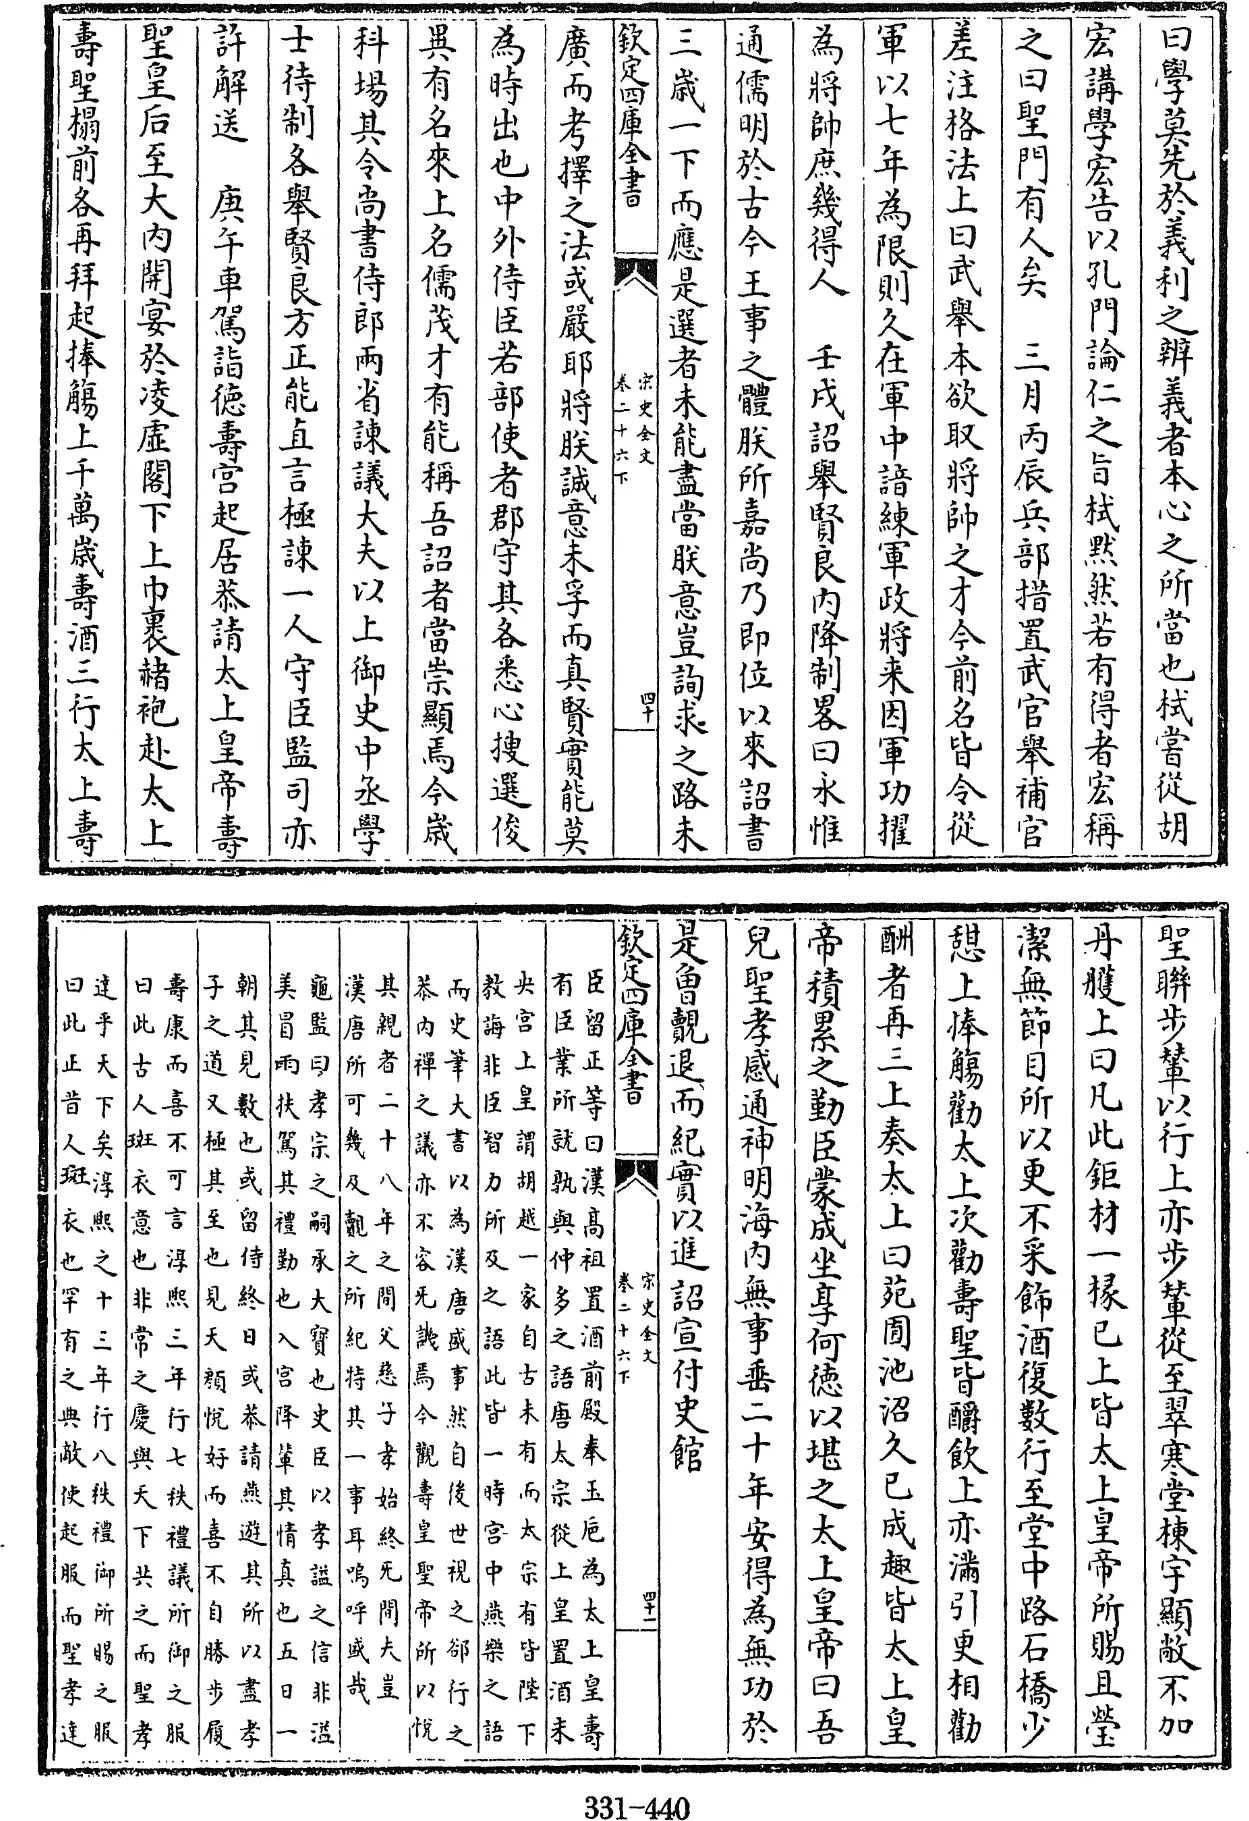 曰學莫先於義利之辨義者本心之所當也栻嘗從胡
宏講學宏告以孔門論仁之旨栻黙然若有得者宏稱
之曰聖門有人矣　三月丙辰兵部措置武官舉補官
差注格法上曰武舉本欲取將帥之才今前名皆令從
軍以七年為限則久在軍中諳練軍政將来因軍功擢
為將帥庶幾得人　壬戌詔舉賢良内降制畧曰永惟
通儒明於古今王事之體朕所嘉尚乃即位以來詔書
三歳一下而應是選者未能盡當朕意豈詢求之路未
欽定四庫全書
宋史全文
卷二十六下
四十
廣而考擇之法或嚴耶將朕誠意未孚而真賢實能莫
為時出也中外侍臣若部使者郡守其各悉心搜選俊
異有名來上名儒茂才有能稱吾詔者當崇顯焉今歳
科場其令尚書侍郎兩省諫議大夫以上御史中丞學
士待制各舉賢良方正能直言極諫一人守臣監司亦
許解送　庚午車駕詣徳壽宫起居恭請太上皇帝壽
聖皇后至大内開宴於凌虚閣下上巾裹赭袍赴太上
壽聖榻前各再拜起捧觴上千萬歳壽酒三行太上壽
聖聯步輦以行上亦步輦從至翠寒堂棟宇顯敞不加
丹雘上曰凡此鉅材一椽已上皆太上皇帝所賜且瑩
潔無節目所以更不采飾酒復數行至堂中路石橋少
憇上捧觴勸太上次勸壽聖皆釂飲上亦滿引更相勸
酬者再三上奏太上曰苑囿池沼久已成趣皆太上皇
帝積累之勤臣蒙成坐享何徳以堪之太上皇帝曰吾
兒聖孝感通神明海内無事垂二十年安得為無功於
是曾覿退而紀實以進詔宣付史館
欽定四庫全書
宋史全文
卷二十六下
四十一
臣留正等曰漢髙祖置酒前殿奉玉巵為太上皇壽
有臣業所就孰與仲多之語唐太宗從上皇置酒未
央宫上皇謂胡越一家自古未有而太宗有皆陛下
教誨非臣智力所及之語此皆一時宫中燕樂之語
而史筆大書以為漢唐盛事然自後世視之郤行之
恭内禪之議亦不容无譏焉今觀壽皇聖帝所以悅
其親者二十八年之間父慈子孝始終无間夫豈
漢唐所可幾及覿之所紀特其一事耳嗚呼盛哉
龜監曰孝宗之嗣承大寶也史臣以孝謚之信非溢
美冒雨扶駕其禮勤也入宫降輦其情真也五日一
朝其見數也或留侍終日或恭請燕遊其所以盡孝
子之道又極其至也見天顔悅好而喜不自勝步履
壽康而喜不可言淳熙三年行七秩禮議所御之服
曰此古人斑衣意也非常之慶與天下共之而聖孝
逹乎天下矣淳熙之十三年行八秩禮御所賜之服
曰此正昔人斑衣也罕有之典敵使起服而聖孝逹
331-440